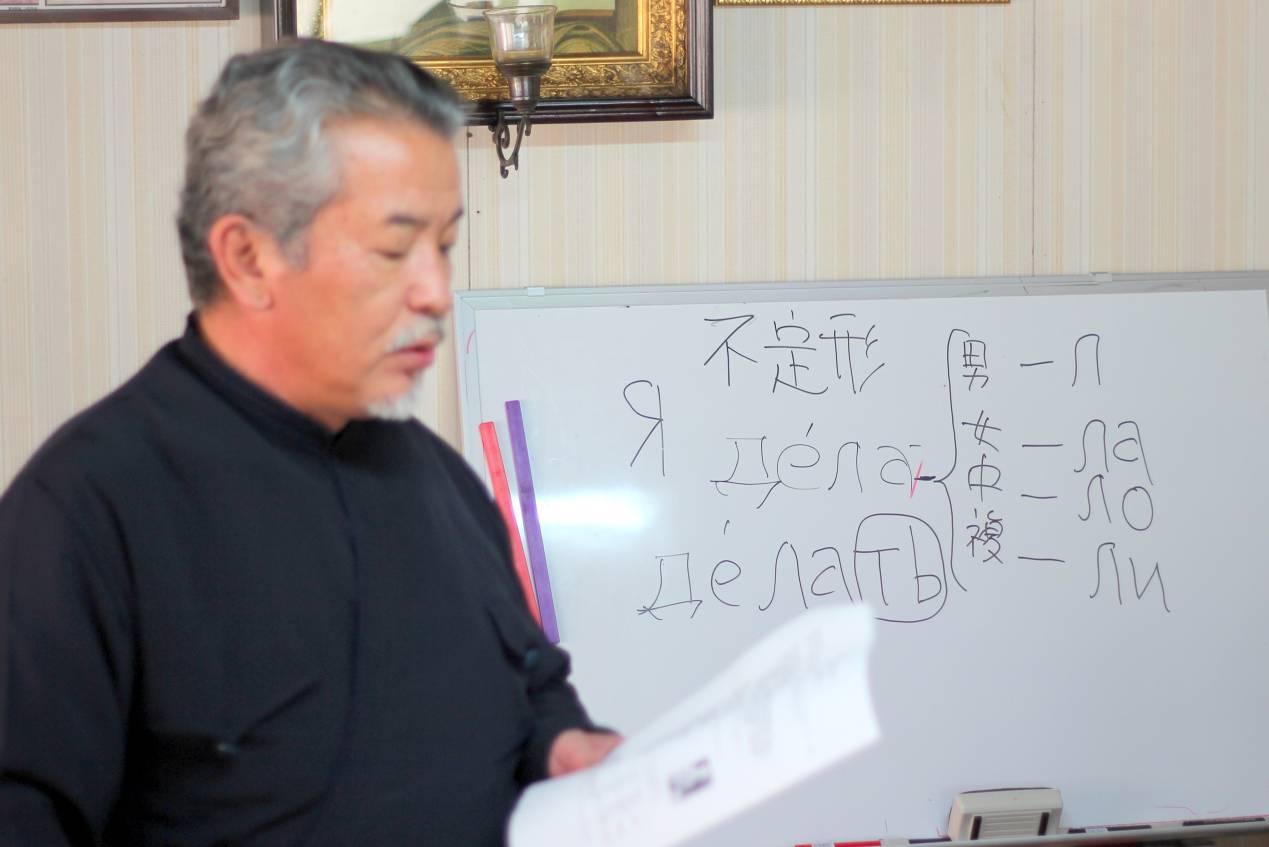 不定形
Я дéла-
дéлать
男 — л
女 — ла
中 — ло
複 — ли